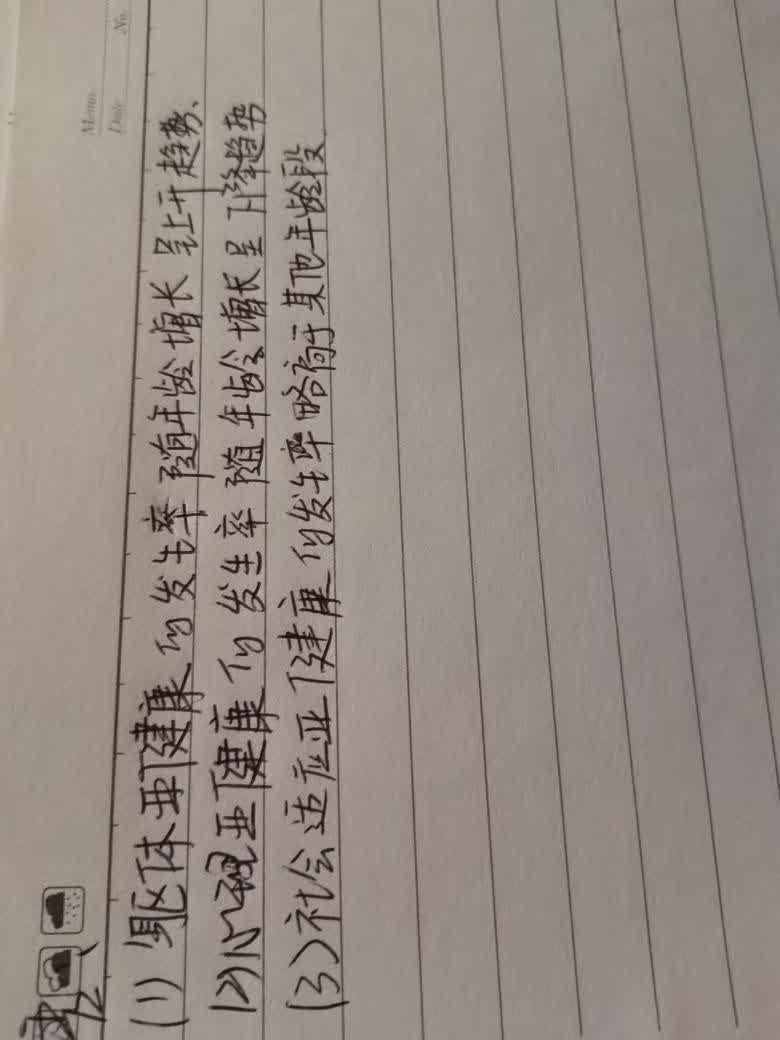 Memo
Date No.
12
(1) 躯体亚健康的发生率随年龄增长呈上升趋势、
(2) 心理亚健康的发生率随年龄增长呈下降趋势
(3) 社会适应亚健康的发生率略高于其他年龄段